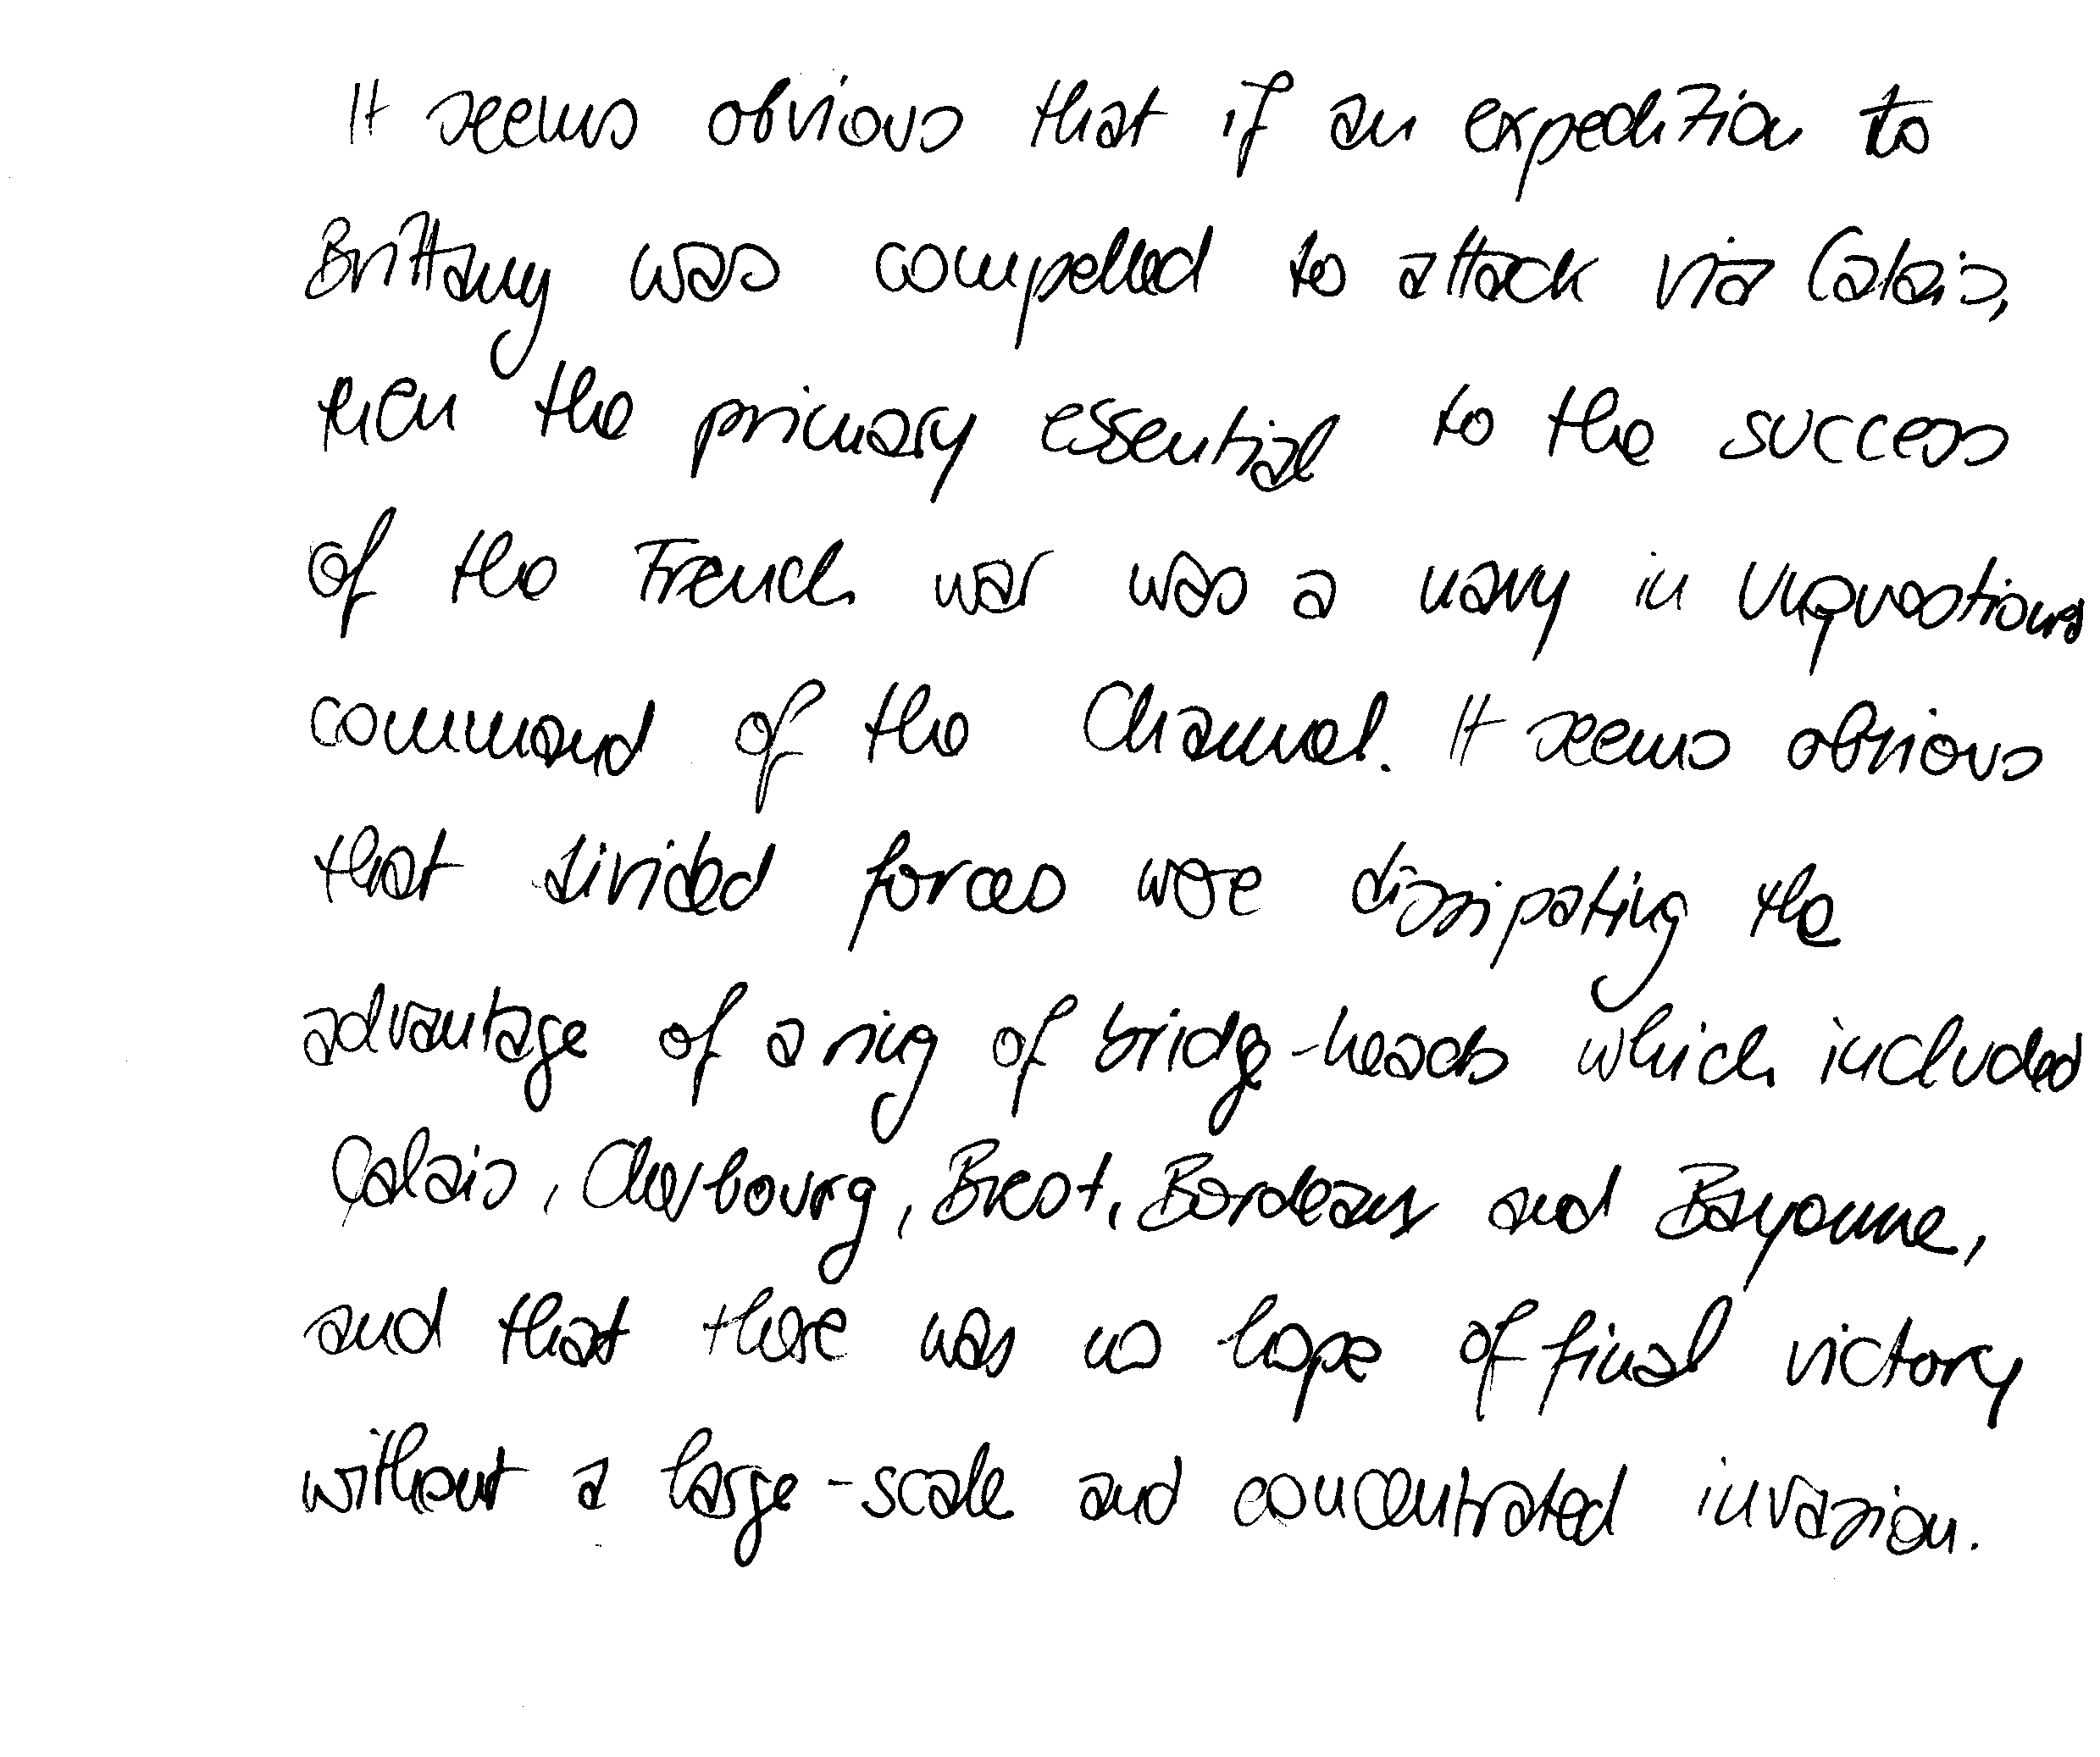 It seems obvious that if an expedition to
Brittany was compelled to attack via Calais,
then the primary essential to the success
of the French war was a navy in unquestioned
command of the Channel. It seems obvious
that divided forces were dissipating the
advantage of a ring of bridge-heads which included
Calais, Cherbourg, Brest, Bordeaux and Bayonne,
and that there was no hope of final victory
without a large-scale and concentrated invasion.